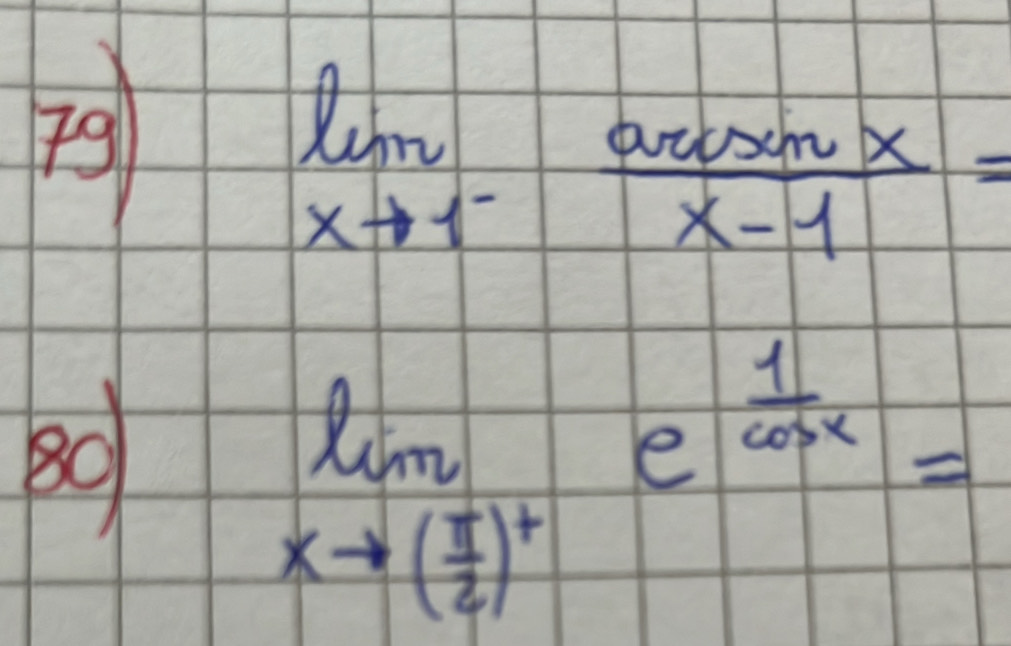 79) lim x→1⁻ arcsin x / x - 1 =
80) lim x→(π/2)⁺ e^(1/cosx) =